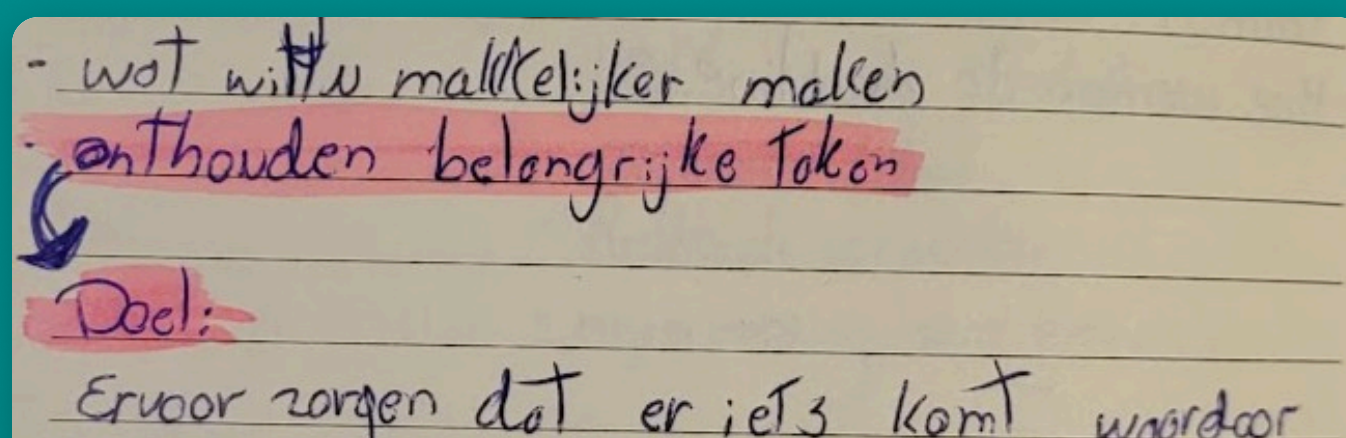 - wat wilt u makkelijker maken
- onthouden belangrijke Taken
Doel:
Ervoor zorgen dat er iets komt waardoor